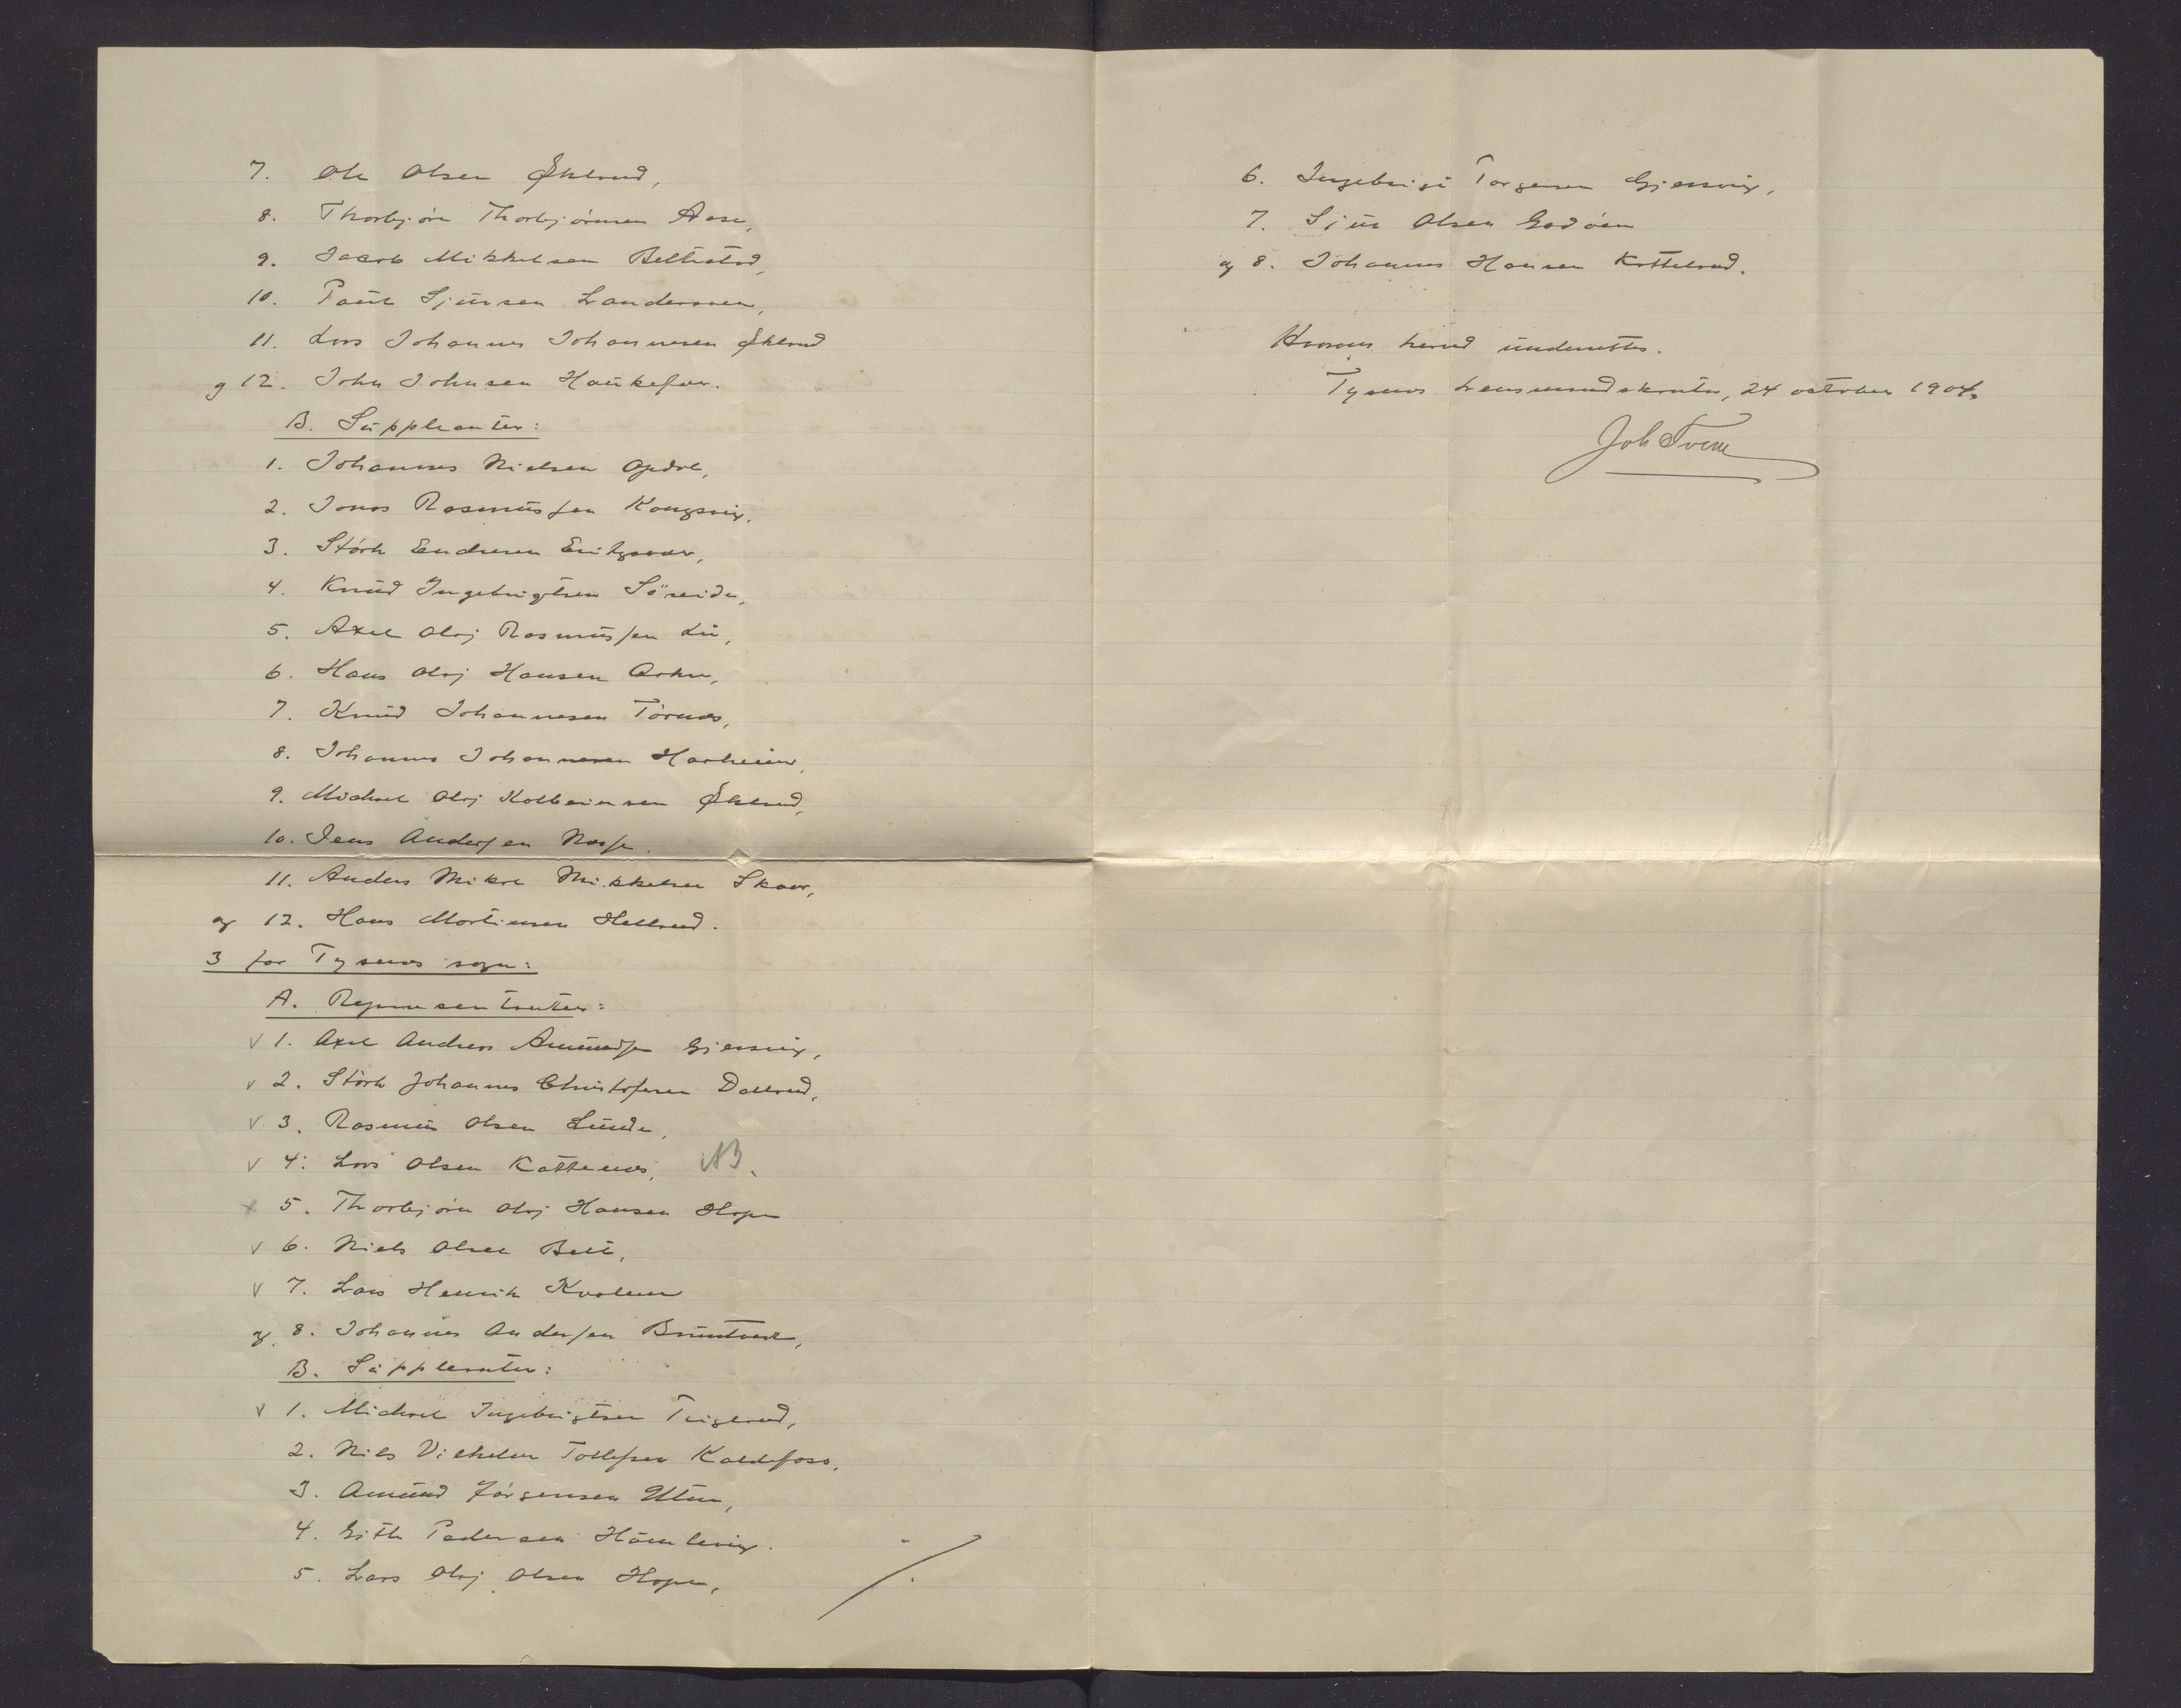 7. Ole Olsen Økland,
8. Thorbjørn Thorbjørnsen Aase,
9. Jacob Mikkelsen Beltestad,
10. Paul Sjursen Landersven,
11. Lars Johannes Johannesen Økland
og 12. John Johnsen Haukefær.
B. Suppleanter:
1. Johannes Nielsen Opdal,
2. Jonas Rasmussen Kongsvig,
3. Størk Endresen
4. Knud Ingebrigtsen Söreide,
5. Axel Olaj Rasmussen Lie,
6. Hans Olaj Hansen
7. Knud Johannesen Törnes,
8. Johannes Johannesen Haaheim,
9. Michael Olaj Kolbeinsen Økland,
10. Jens Andersen Nesse.
11. Anders Mikal Mikkelsen Skaar,
og 12. Hans Mortinsen Helland.
3 for Tysnes sogn:
A. Repræsentanter:
v 1. Axel Andreas Amundsen Gjersvig,
v 2. Størk Johannes Christofersen Dalland,
v 3. Rasmus Olsen Lunde,
v 4. Lars Olsen Kattenes, NB.
x 5. Thorbjørn Olaj Hansen Hope
v 6. Niels Olsen Belt,
v 7. Lars Henrik Kvalem
og 8. Johannes Andersen Bruntveit,
B. Suppleanter:
v 1. Michael Ingebrigtsen Teigland,
2. Nils Vilhelm Tollefsen Kaldefoss,
3. Amund Jørgensen Utne,
4. Gitle Pedersen
5. Lars Olaj Olsen Hope,
./.
6. Ingebrigt Torgersen Gjersvig,
7. Sjur Olsen Godøen
og 8. Johannes Hansen Katteland.
Hvorom herved underrettes.
Tysnes Lensmandskontor, 24 october 1904.
Joh Tveit